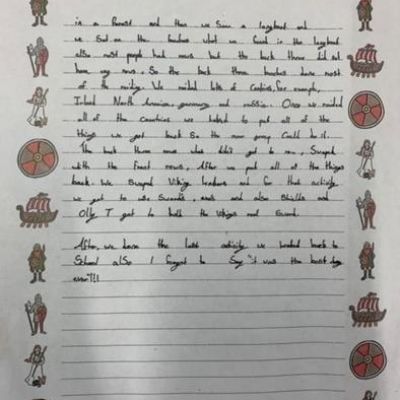 in a forest and then we saw a longboat and
we sat on the benches what we found in the longboat
also most people had oars but the back three did not
have any oars, So the back three benches have most
of the raiding. We raided lots of Countries, for example,
Ireland North America, germany and russia. Once we raided
all of the Countries we had to put all of the
things we got back so the next group Could do it.
The back three rows what didn't get to row, Swaped
with the front rows, After we put all of the things
back. We Swaped Viking leaders and for that activity
we got to use Swords, axes and also Shields and
Olly I got to hold the vikings real Sword.
After, we done the last activity we walked back to
School also I forgot to Say "it was the best day
ever"!!!